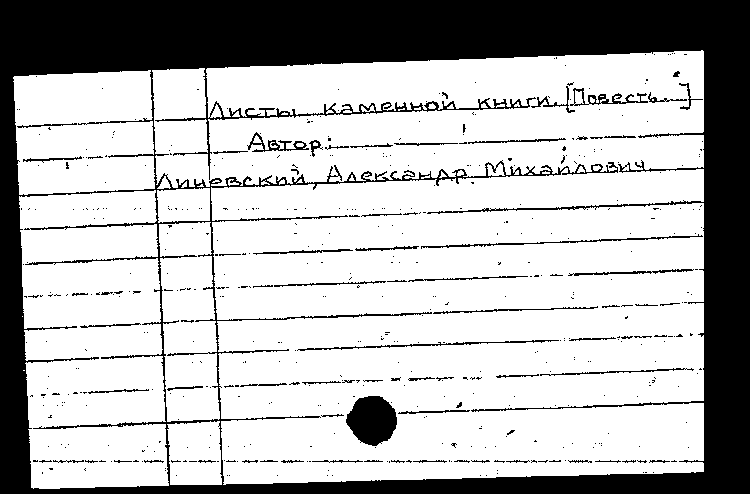 Листы каменной книги. [Повесть...]
Автор:
Линевский, Александр Михайлович